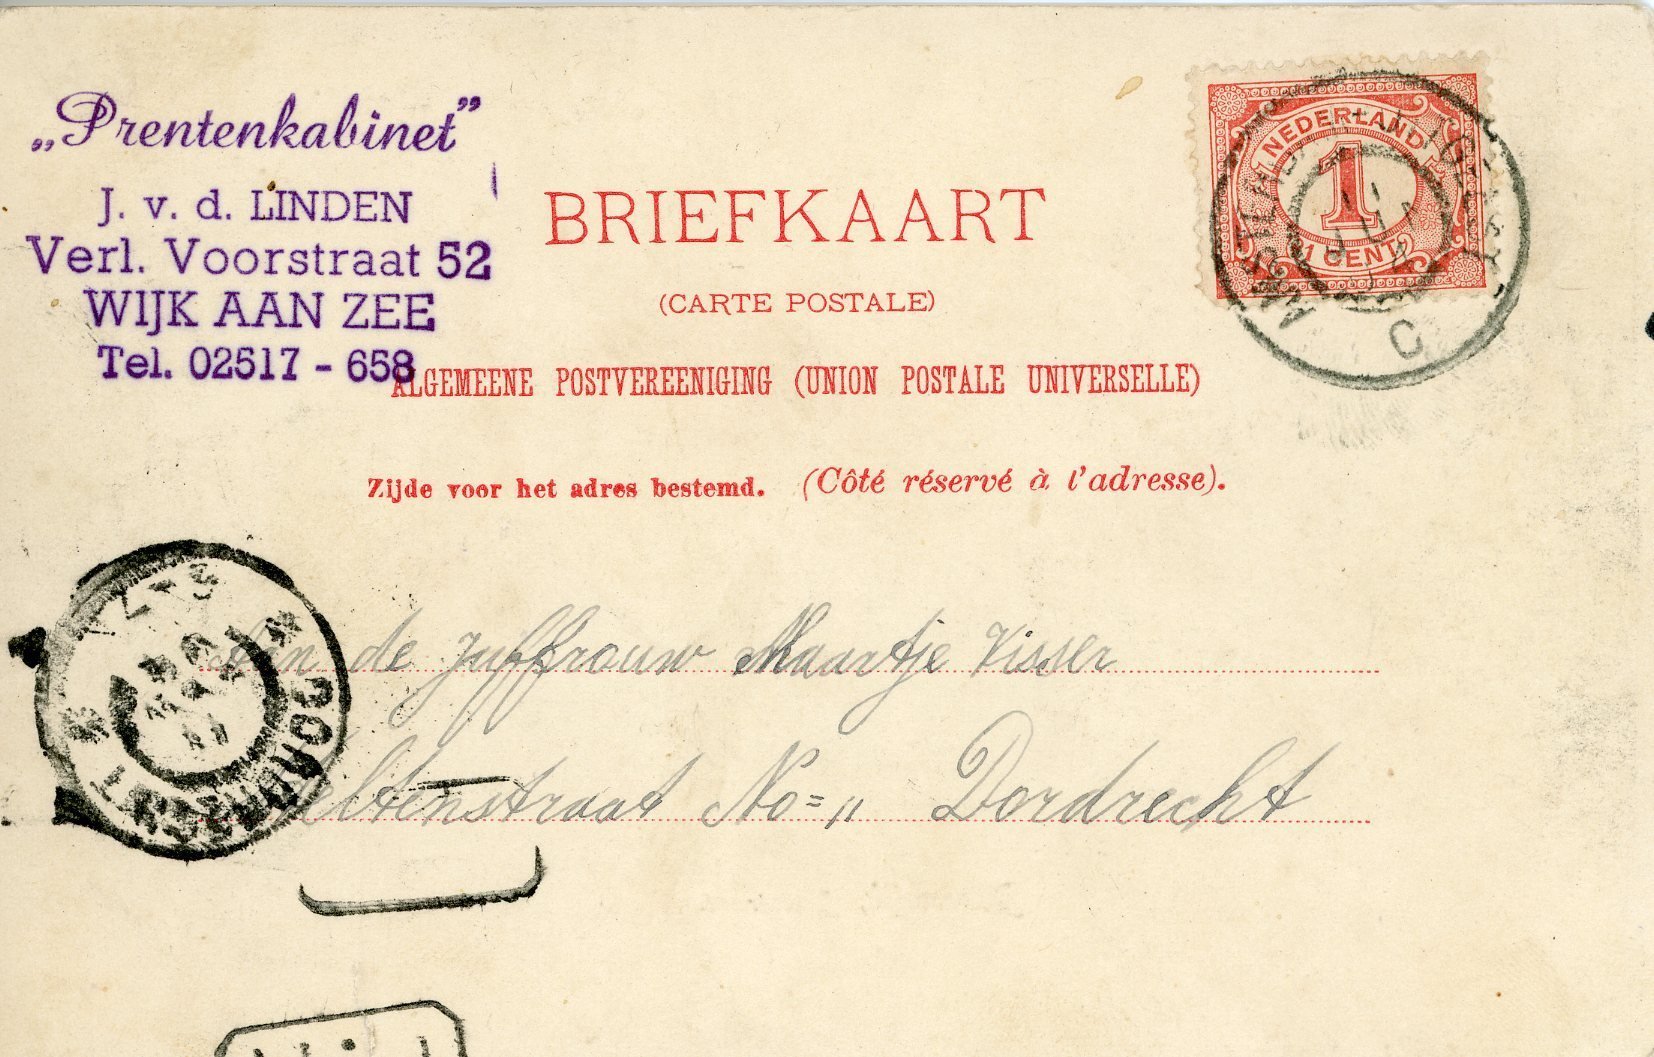 „Prentenkabinet”
J. v. d. LINDEN
Verl. Voorstraat 52
WIJK AAN ZEE
Tel. 02517 - 658
BRIEFKAART
(CARTE POSTALE)
ALGEMEENE POSTVEREENIGING (UNION POSTALE UNIVERSELLE)
Zijde voor het adres bestemd. (Côté réservé à l'adresse).
NEDERLAND
1
1 CENT
Aan de Juffrouw Maartje Visser
No= 11 Dordrecht